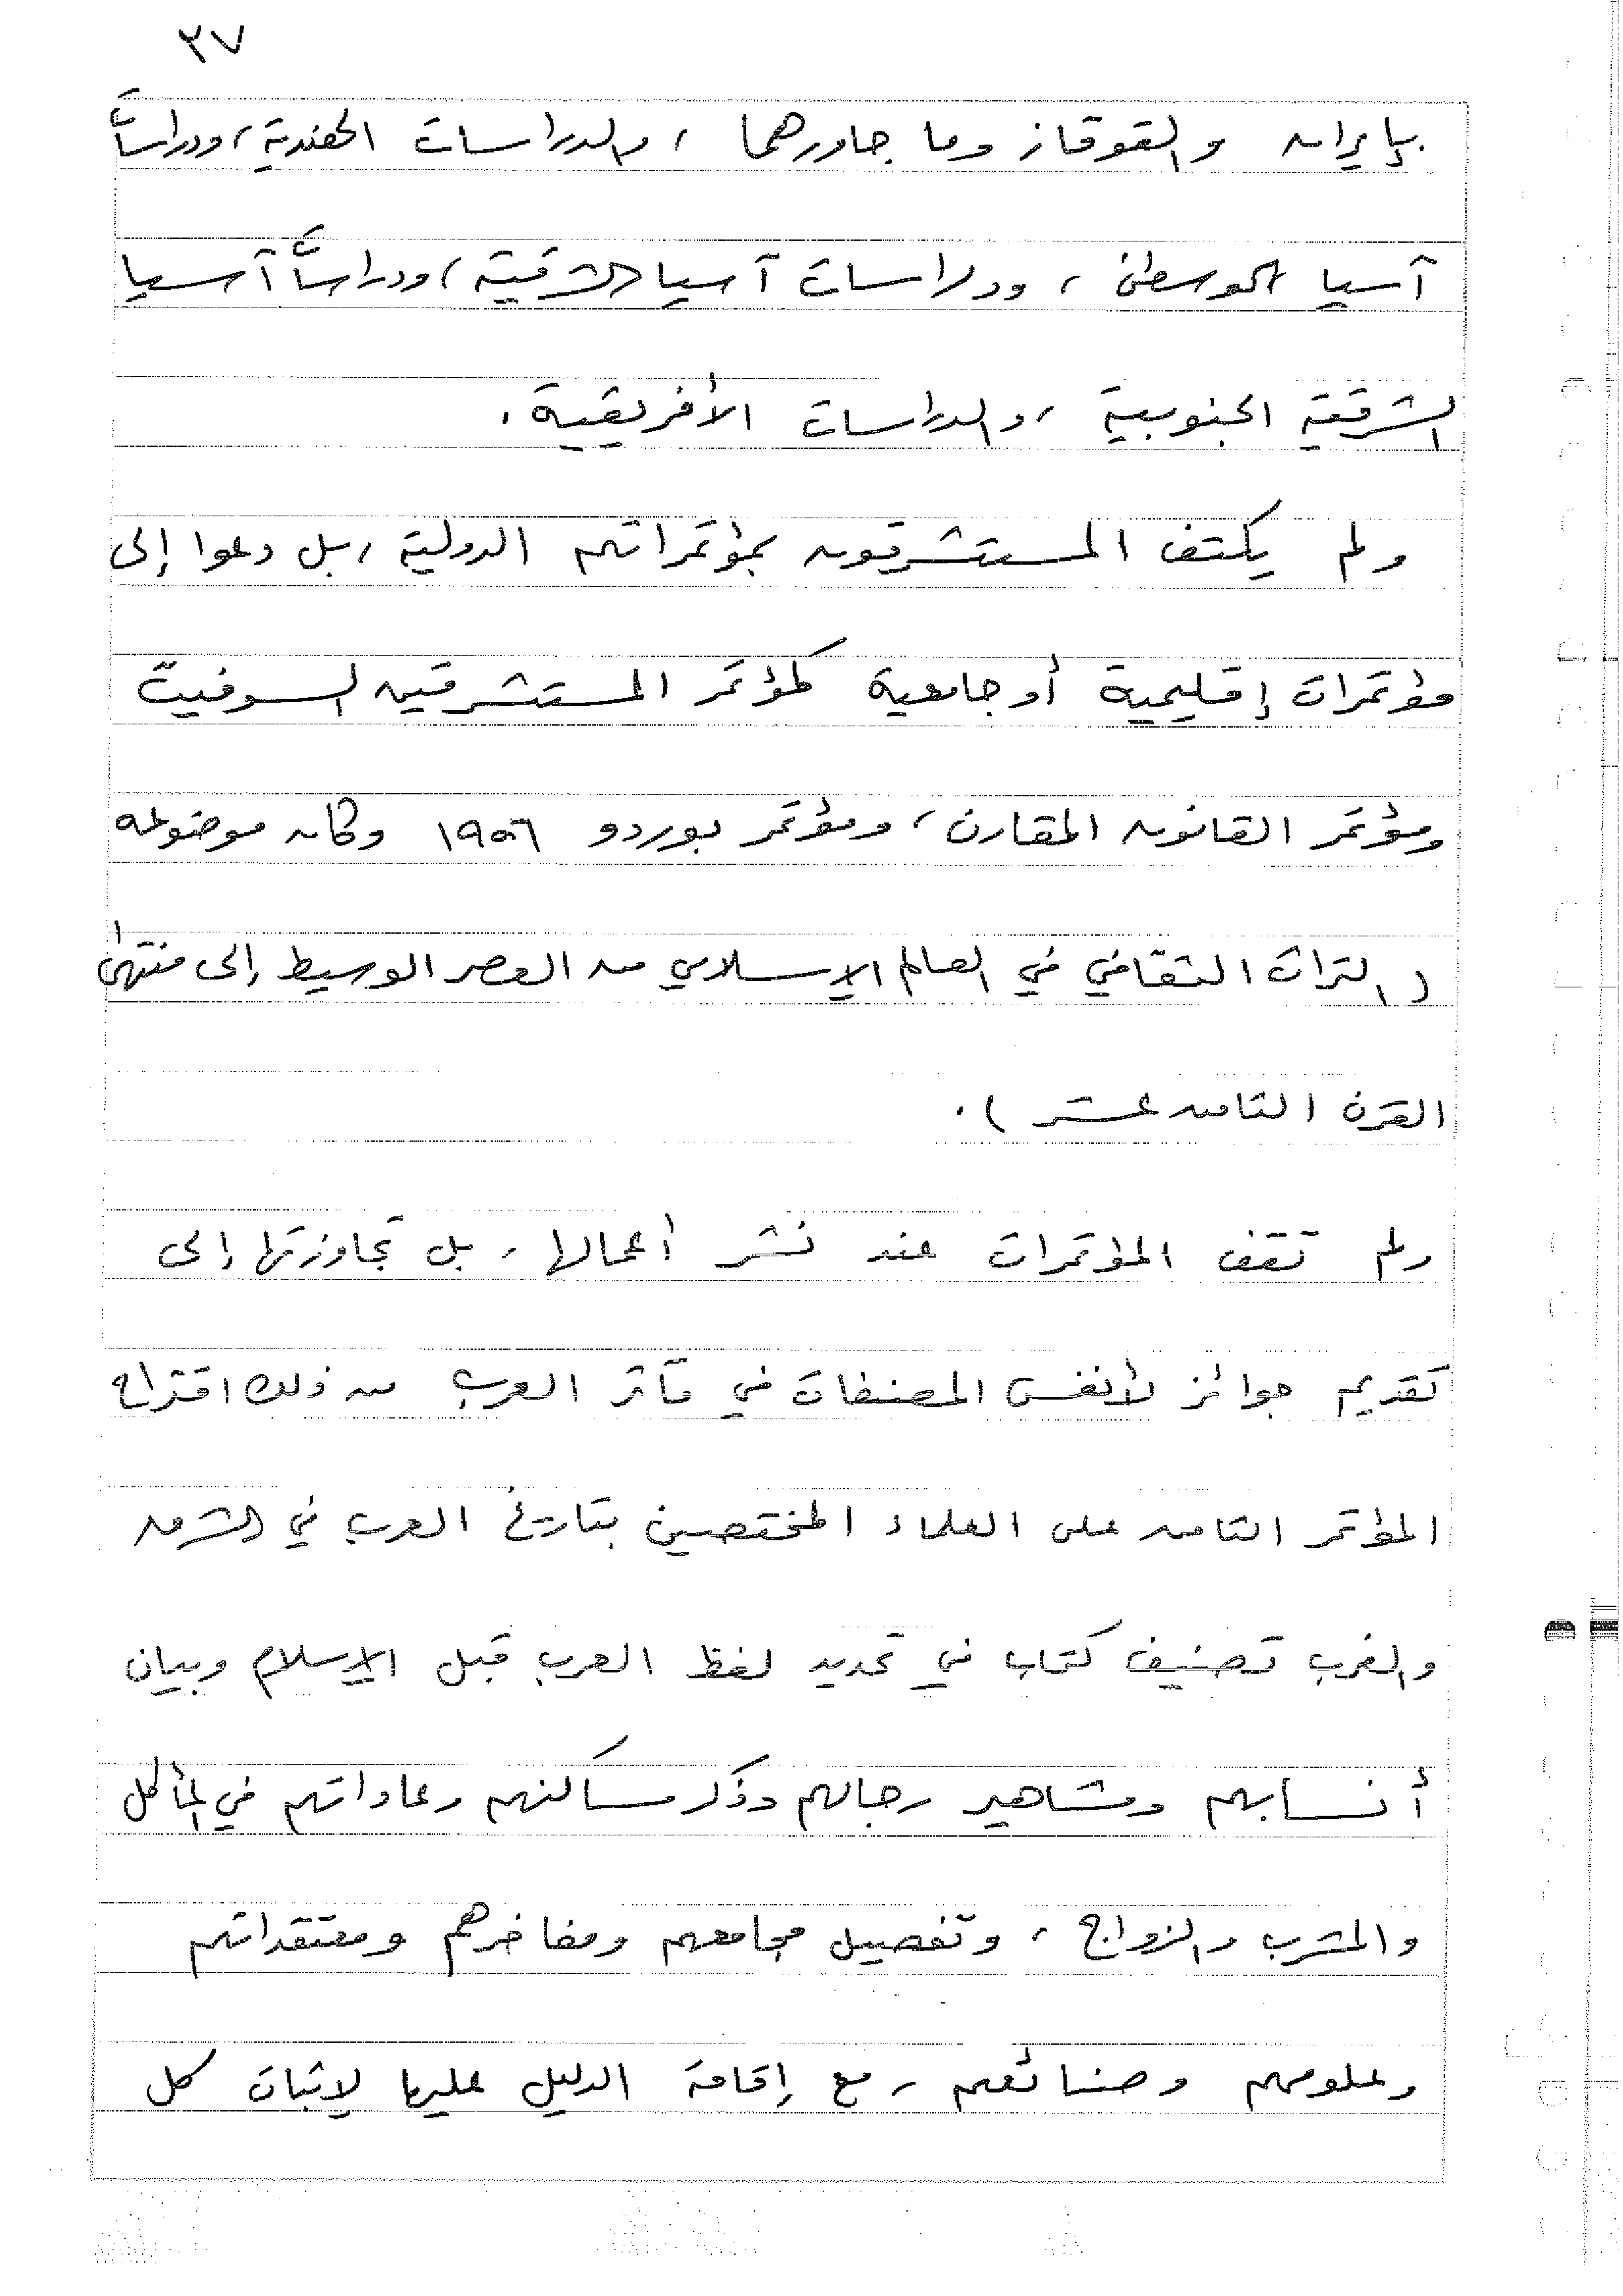 ٣٧
بإيران والقوقاز وما جاورهما ، والدراسات الهندية ، ودراسات
آسيا الوسطى ، ودراسات آسيا الشرقية ، ودراسات آسيا
الشرقية الجنوبية ، والدراسات الأفريقية .
ولم يكتف المستشرقون بمؤتمراتهم الدولية ، بل دعوا إلى
مؤتمرات إقليمية أو جامعية كمؤتمر المستشرقين السوفيت
ومؤتمر القانون المقارن ، ومؤتمر بوردو ١٩٥٦ وكان موضوعه
( التراث الثقافي في العالم الإسلامي من العصر الوسيط إلى منتهى
القرن الثامن عشر ) .
ولم تقف المؤتمرات عند نشر أعمالها ، بل تجاوزتها إلى
تقديم جوائز لأنفس المصنفات في مآثر العرب من ذلك اقتراح
المؤتمر الثامن على العلماء المختصين بتاريخ العرب في الشرق
والغرب تصنيف كتاب في تحديد لفظ العرب قبل الإسلام وبيان
أنسابهم ومشاهير رجالهم وذكر مساكنهم وعاداتهم في المأكل
والمشرب والزواج ، وتفصيل مجامعهم ومفاخرهم ومعتقداتهم
وعلومهم وصنائعهم ، مع إقامة الدليل عليها لإثبات كل